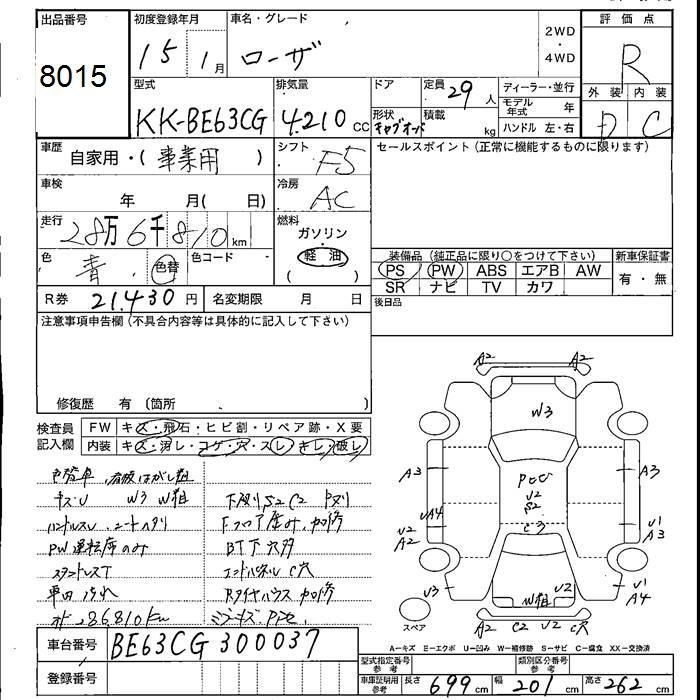 出品番号
8015
初度登録年月
15 1月
車名・グレード
ローザ
2WD
・
4WD
評価点
R
外装 内装
D C
型式
KK-BE63CG
排気量
4.210 CC
ドア
形状
キャブオーバ
定員
29人
積載
kg
ディーラー・並行
モデル年式 年
ハンドル 左・右
車歴
自家用・(事業用)
シフト
F5
セールスポイント(正常に機能するものに限ります)
車検
年 月( 日)
冷房
AC
走行
28万6千810km
燃料
ガソリン
・
軽油
色
青
色替
色コード
装備品(純正品に限り○をつけて下さい)
新車保証書
PS PW ABS エアB AW
SR ナビ TV カワ
有・無
R券 21.430円
名変期限 月 日
後日品
注意事項申告欄(不具合内容等は具体的に記入して下さい)
修復歴 有 (箇所 )
検査員
記入欄
FW キズ・飛石・ヒビ割・リペア跡・X要
内装 キズ・汚レ・コゲ・穴・スレ・キレ・破レ
色替車 看板はがし粗
キズU W3 W粗
下廻りS2 C2 Pヌリ
PW運転席のみ
BT下穴多
Rタイヤハウス加修
オド286810km
車台番号
BE63CG 300037
登録番号
A2 A2
W3
A3 A3
PCC
U2
S2
C3
UA4
U2
A2
U1
A3
U3
U1
A4
W粗 U2
A2 C2 U2 C穴
スペア
A-キズ E-エクボ U-凹み W-補修跡 S-サビ C-腐食 XX-交換済
型式指定番号
参考
類別区分番号
参考
車庫証明用
参考
長さ 699cm 幅 201cm 高さ 262cm